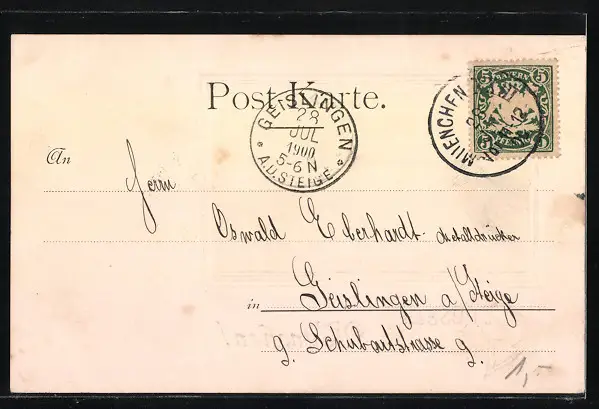 Post-Karte.
5 BAYERN 5
MUENCHEN
GEISLINGEN
28
JUL
1900
5-6 N
* A.D.STEIGE *
An
Herrn
Oswald Eberhardt Metalldrücker
in Geislingen a/Steige
9. Schubartstrasse 9.
1,-